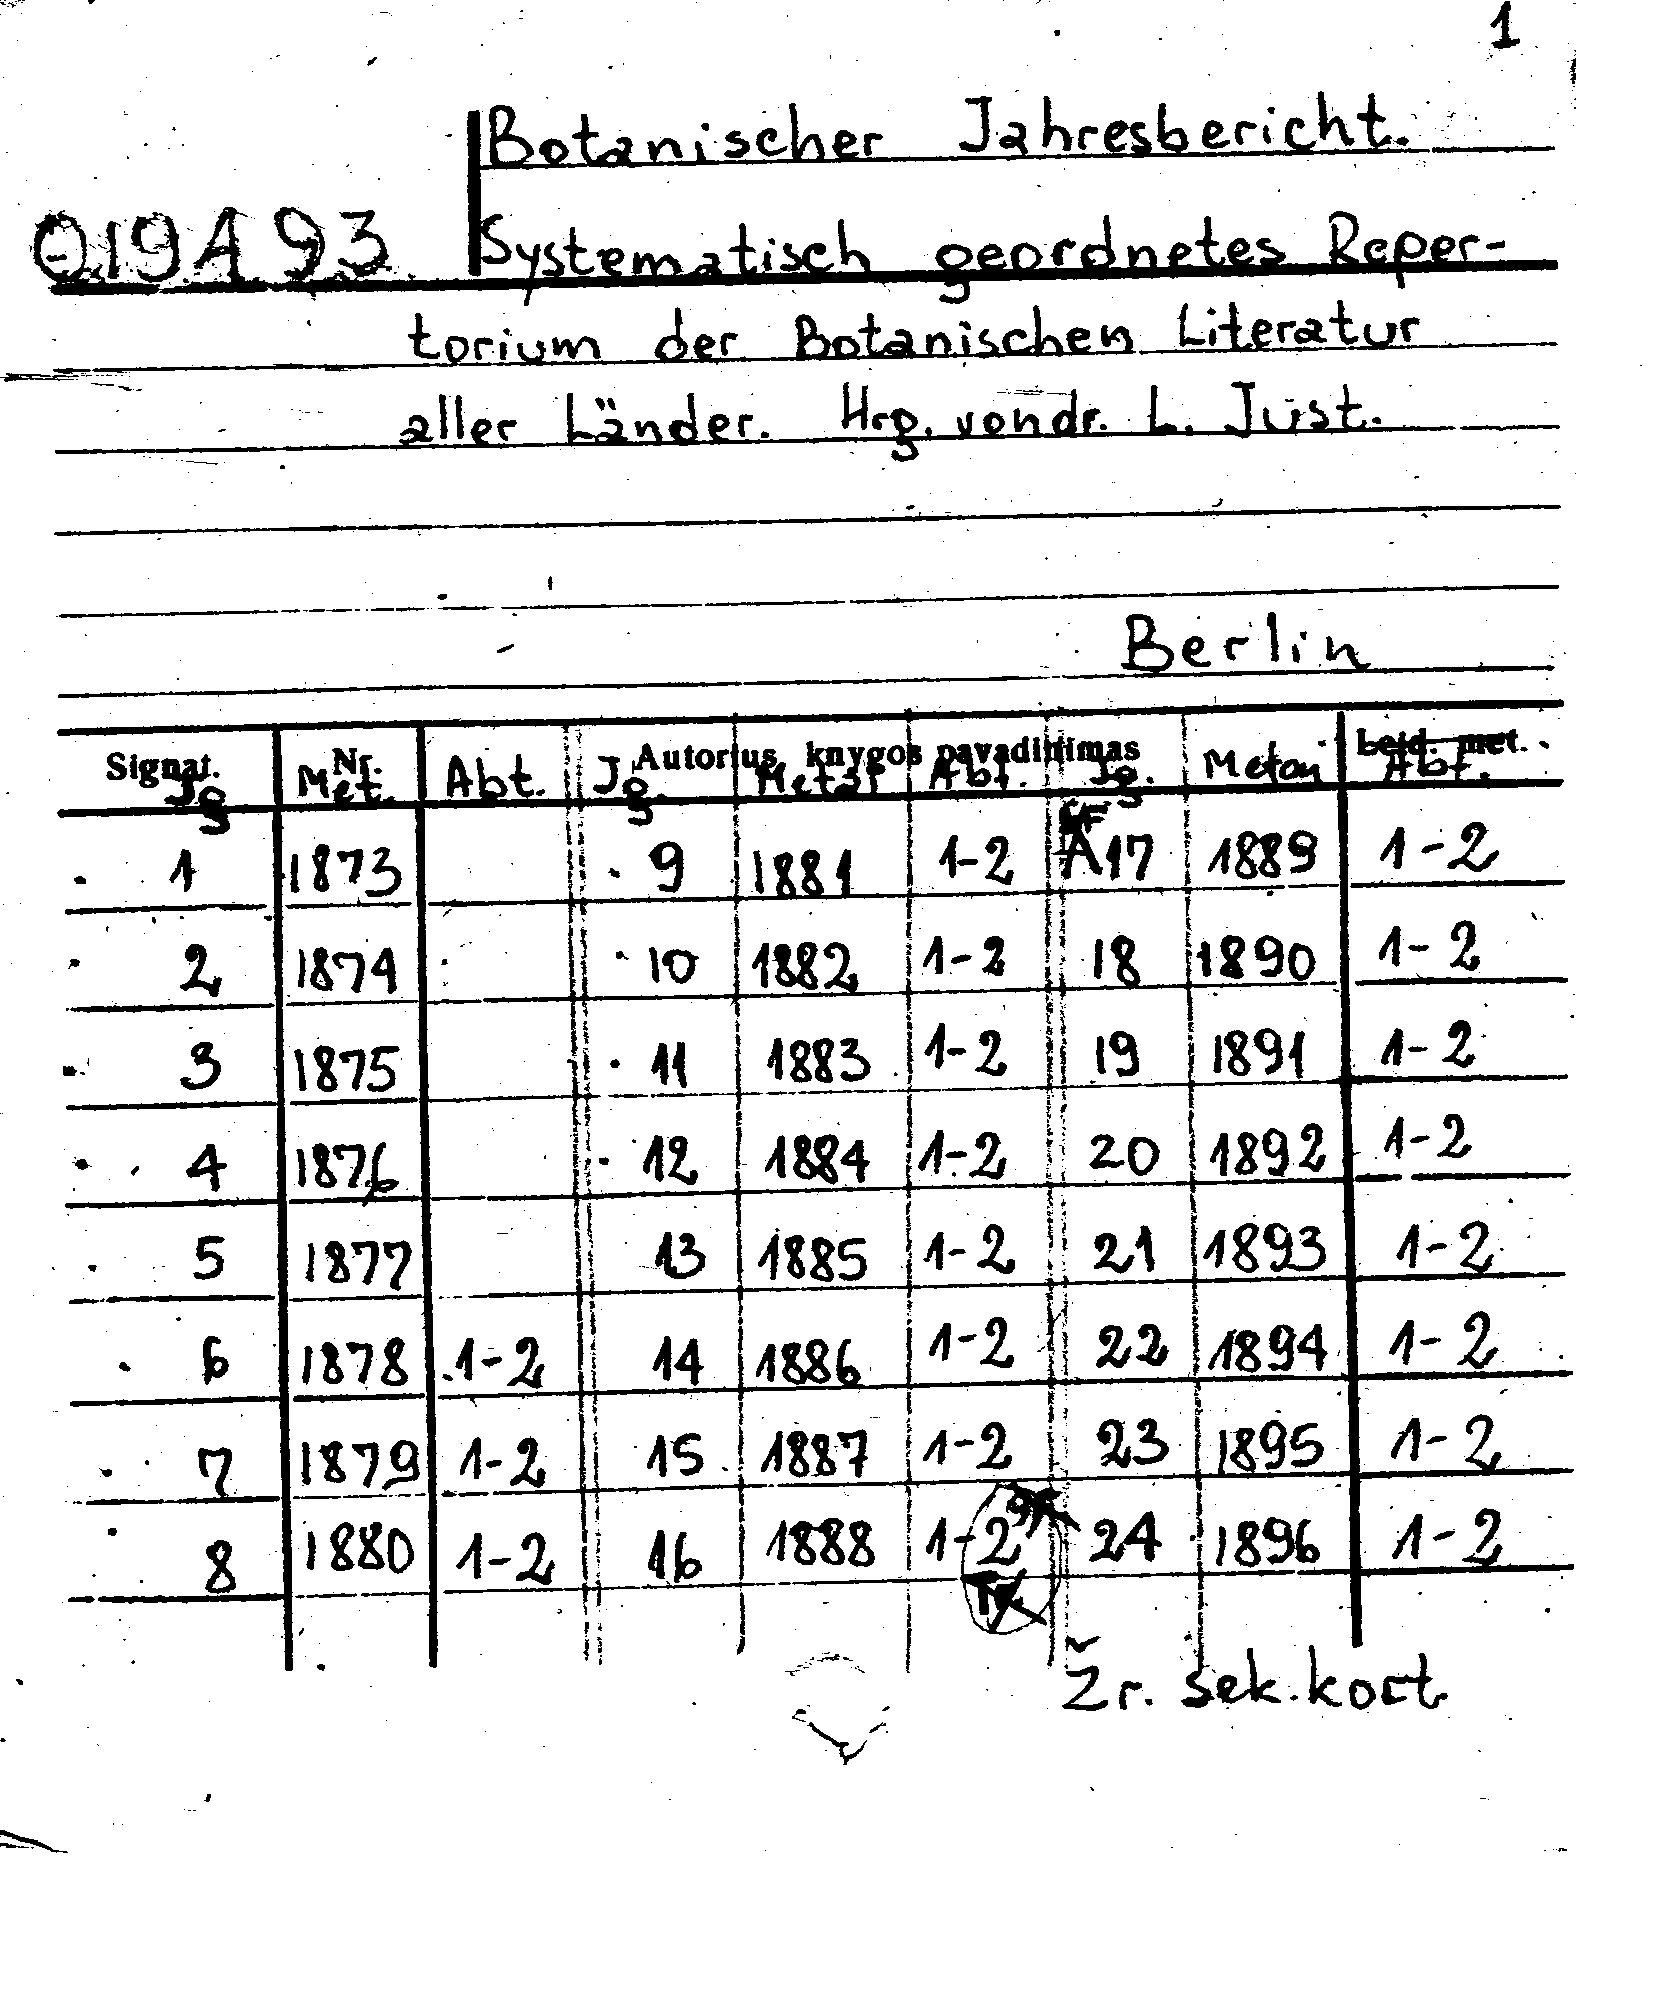 1
Botanischer Jahresbericht.
Systematisch geordnetes Reper-
torium der Botanischen Literatur
aller Länder. Hrg. von dr. L. Just.
Berlin
Signat. Nr. Autorius, knygos pavadinimas Leid. met.
Jg Met. Abt. Jg. Metai Abt. Jg. Metai Abt.
1 1873 9 1881 1-2 17 1889 1-2
2 1874 10 1882 1-2 18 1890 1-2
3 1875 11 1883 1-2 19 1891 1-2
4 1876 12 1884 1-2 20 1892 1-2
5 1877 13 1885 1-2 21 1893 1-2
6 1878 1-2 14 1886 1-2 22 1894 1-2
7 1879 1-2 15 1887 1-2 23 1895 1-2
8 1880 1-2 16 1888 1-2 24 1896 1-2
Žr. sek. kort